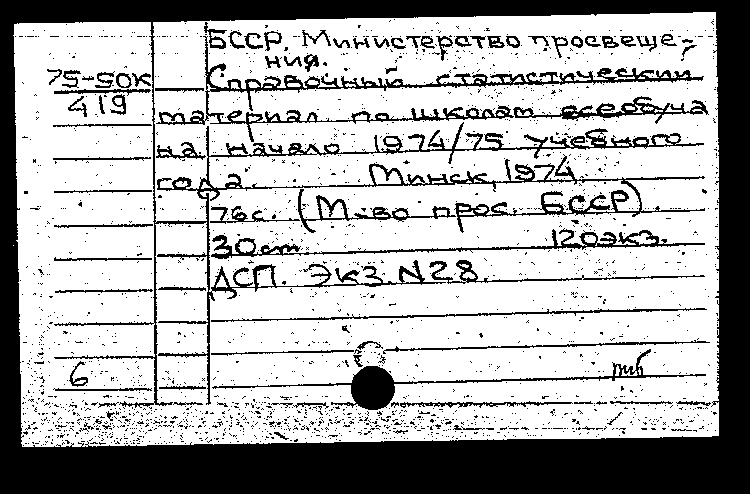 БССР, Министерство просвеще-
ния.
75-50К
419
Справочный статистический
материал по школам всеобуча
на начало 1974/75 учебного
года. Минск, 1974.
76с. (М-во прос. БССР).
30ст. 120экз.
ДСП. Экз. N28.
6